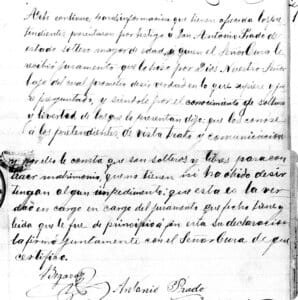 Acto continuo para la información que tienen ofrecida los pre
tendientes presentaron por testigo a Don Antonio Prado de
estado soltero mayor de edad, a quien el Señor Cura le
recibió juramento que lo hizo por Dios Nuestro Señor
bajo del cual prometió decir verdad en lo que supiere y fue
re preguntado, y siéndole por el conocimiento de soltura
y libertad de los que se presentan dijo: que los conoce
a los pretendientes de vista trato y comunicación
y por eso le consta que son solteros y libres para con
traer matrimonio, que no tienen ni ha oído decir
tengan algun impedimento; que esta es la ver
dad en cargo en cargo del juramento que fecho tiene y
leida que le fue de principio a fin esta su declaracion
la firmó juntamente con el Señor Cura de que
certifico.
Antonio Prado